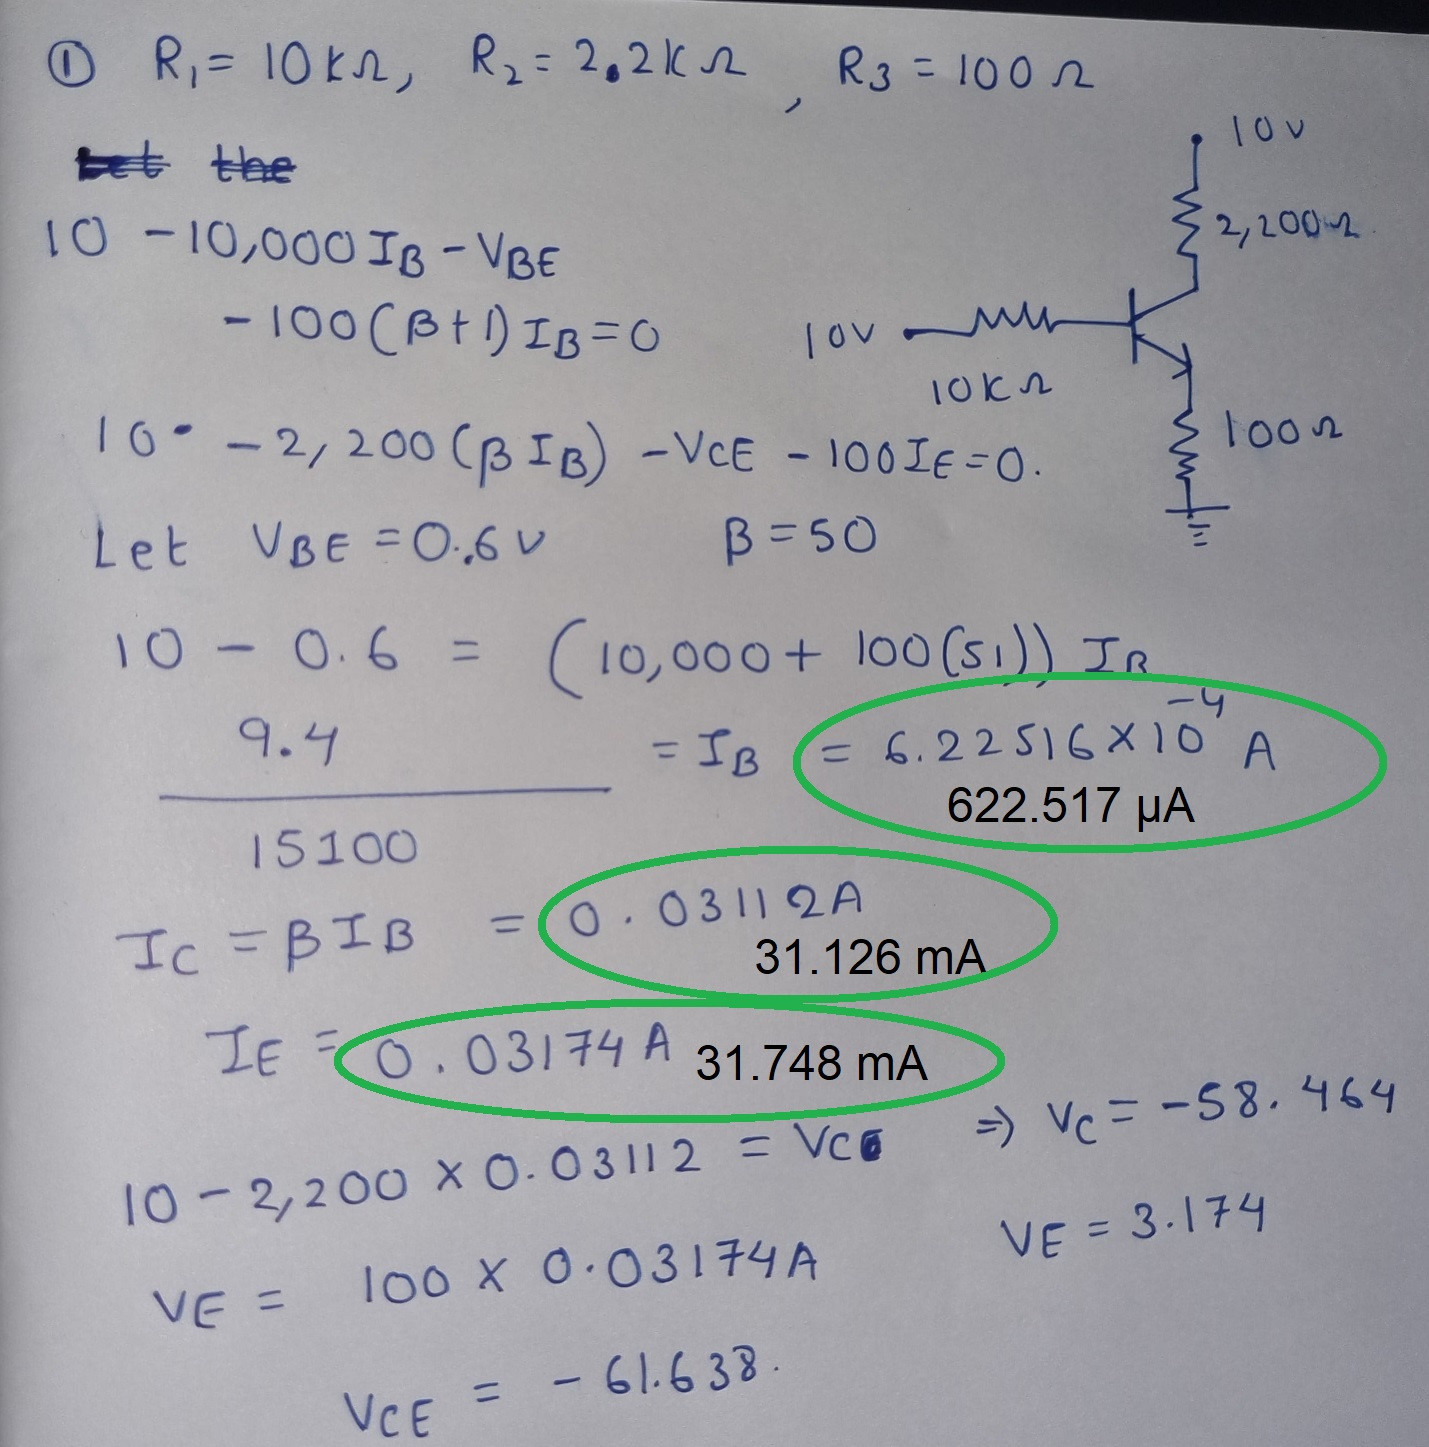 ① R₁ = 10KΩ, R₂ = 2.2KΩ, R3 = 100Ω
~~Let the~~
10V
10 - 10,000 IB - VBE
2,200Ω
- 100(β+1) IB = 0
10V
10KΩ
100Ω
10 - 2,200(β IB) - VCE - 100 IE = 0.
Let VBE = 0.6V β = 50
10 - 0.6 = (10,000 + 100(51)) IB
9.4 = IB = 6.22516 × 10⁻⁴ A
622.517 µA
15100
IC = β IB = 0.03112A
31.126 mA
IE = 0.03174A 31.748 mA
10 - 2,200 × 0.03112 = VC ⇒ VC = -58.464
VE = 100 × 0.03174A VE = 3.174
VCE = -61.638.